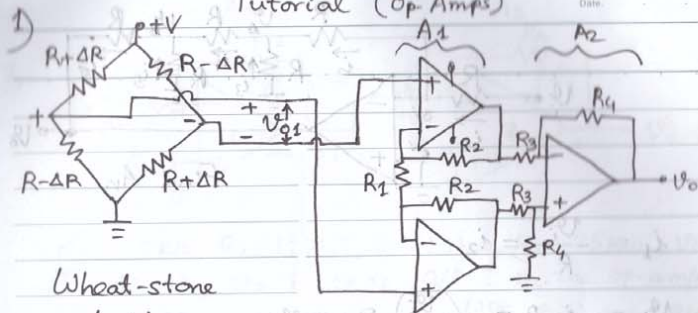 Tutorial (Op-Amps)
Date.
1)
+V
A1
A2
R+ΔR
R-ΔR
+
-
+
-
v01
R-ΔR
R+ΔR
R1
R2
R2
R3
R3
R4
R4
+
-
-
+
-
+
vo
Wheat-stone